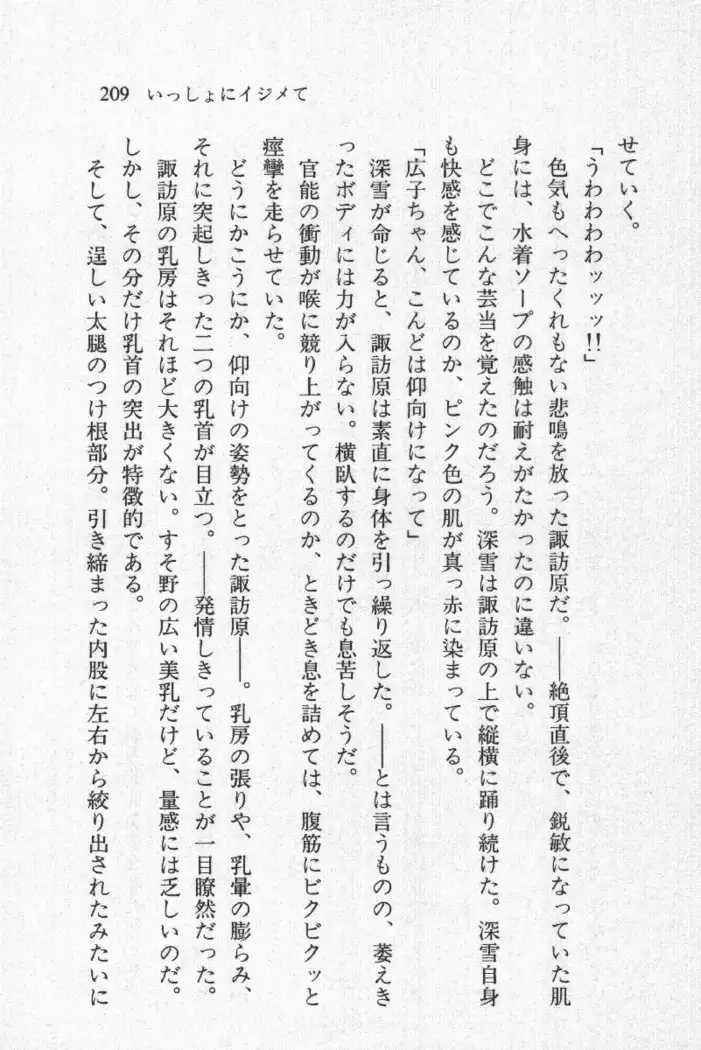 209　いっしょにイジメて
せていく。
「うわわわわッッッ!!」
色気もへったくれもない悲鳴を放った諏訪原だ。――絶頂直後で、鋭敏になっていた肌
身には、水着ソープの感触は耐えがたかったのに違いない。
どこでこんな芸当を覚えたのだろう。深雪は諏訪原の上で縦横に踊り続けた。深雪自身
も快感を感じているのか、ピンク色の肌が真っ赤に染まっている。
「広子ちゃん、こんどは仰向けになって」
深雪が命じると、諏訪原は素直に身体を引っ繰り返した。――とは言うものの、萎えき
ったボディには力が入らない。横臥するのだけでも息苦しそうだ。
官能の衝動が喉に競り上がってくるのか、ときどき息を詰めては、腹筋にビクビクッと
痙攣を走らせていた。
どうにかこうにか、仰向けの姿勢をとった諏訪原――。乳房の張りや、乳暈の膨らみ、
それに突起しきった二つの乳首が目立つ。――発情しきっていることが一目瞭然だった。
諏訪原の乳房はそれほど大きくない。すそ野の広い美乳だけど、量感には乏しいのだ。
しかし、その分だけ乳首の突出が特徴的である。
そして、逞しい太腿のつけ根部分。引き締まった内股に左右から絞り出されたみたいに